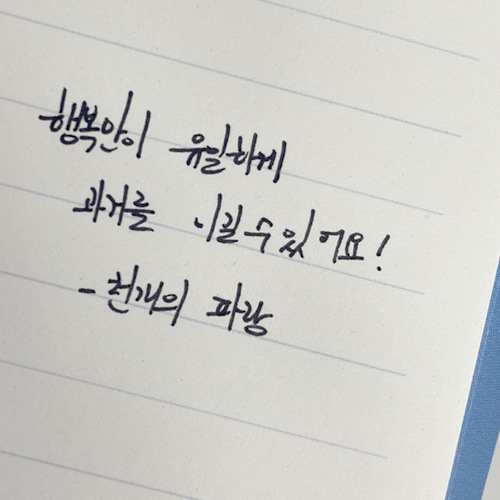 행복만이 유일하게
과거를 이길 수 있어요!
- 천개의 파랑